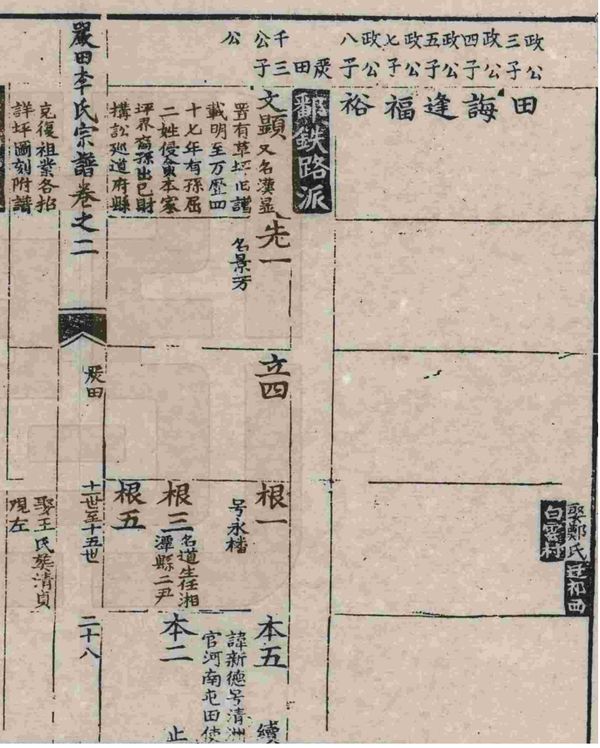 政公三子田
政公四子誨
政公五子逢
政公七子福
政公八子裕
娶鄭氏迁祁西
白雲村
鄱鉄路派
炭田千三公子文顯
又名漢显
置有草坪旧譜
載明至万歷四
十七年有孫屈
二姓侵僉本家
坪界裔孫出已財
構訟巡道府縣
先一
名景芳
立四
根一
号永檣
根三
名道生任湘
潭縣二尹
根五
本五
諱新德号清洲
官河南屯田使
續
本二
止
嚴田李氏宗譜卷之二
炭田
十一世至十五世
二十八
公
克復祖業各抬
詳坪圖刻附譜
娶王氏葵清貞
現左